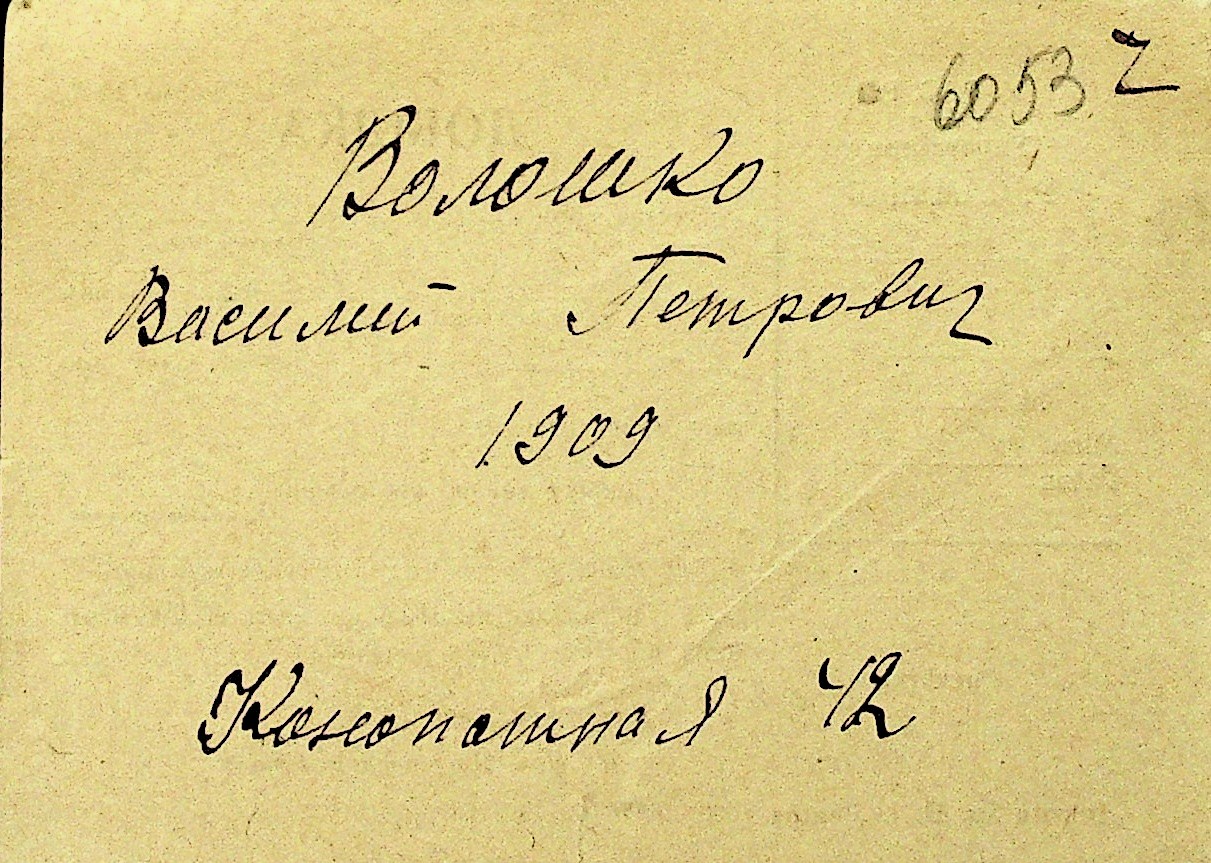 6053 ч
Волошко
Василий Петрович
1909
Конопатная 42